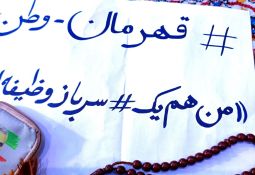 # قهرمان - وطن
((من هم یک # سرباز وظیفه